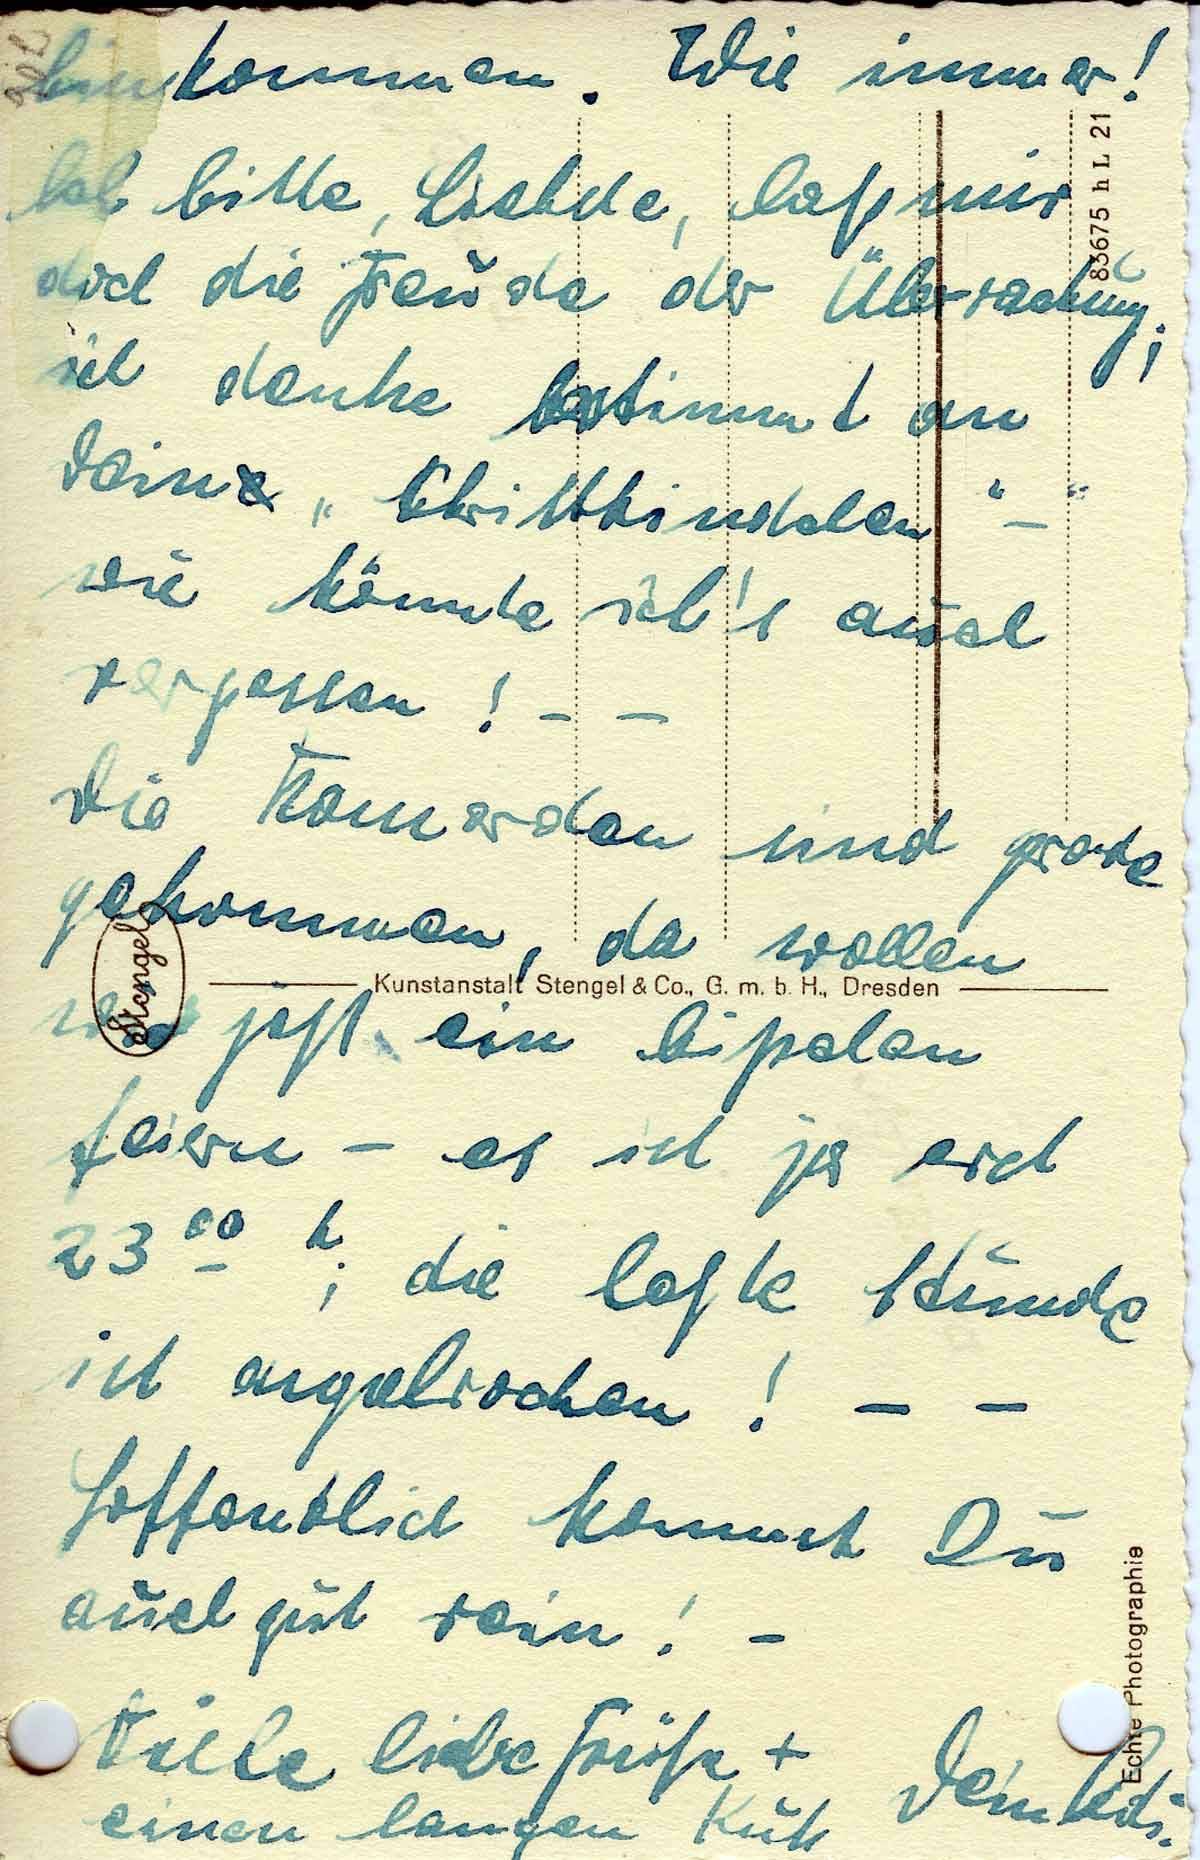 hinkommen. Wie immer!
bitte, Liebste, laß mir
doch die Freude der Überraschung;
ich denke bestimmt an
Dein „Christkindelen“ –
wie könnte ich's auch
vergessen! – –
Die Kameraden sind grade
gekommen, da wollen
wir jetzt ein bißchen
feiern – es ist ja erst
23⁰⁰ h; die letzte Stunde
ist angebrochen! – –
Hoffentlich kommst Du
auch gut rein! –
Viele liebe Grüße +
einen langen Kuß Dein
83675 h L 21
Stengel
Kunstanstalt Stengel & Co., G. m. b. H., Dresden
Echte Photographie